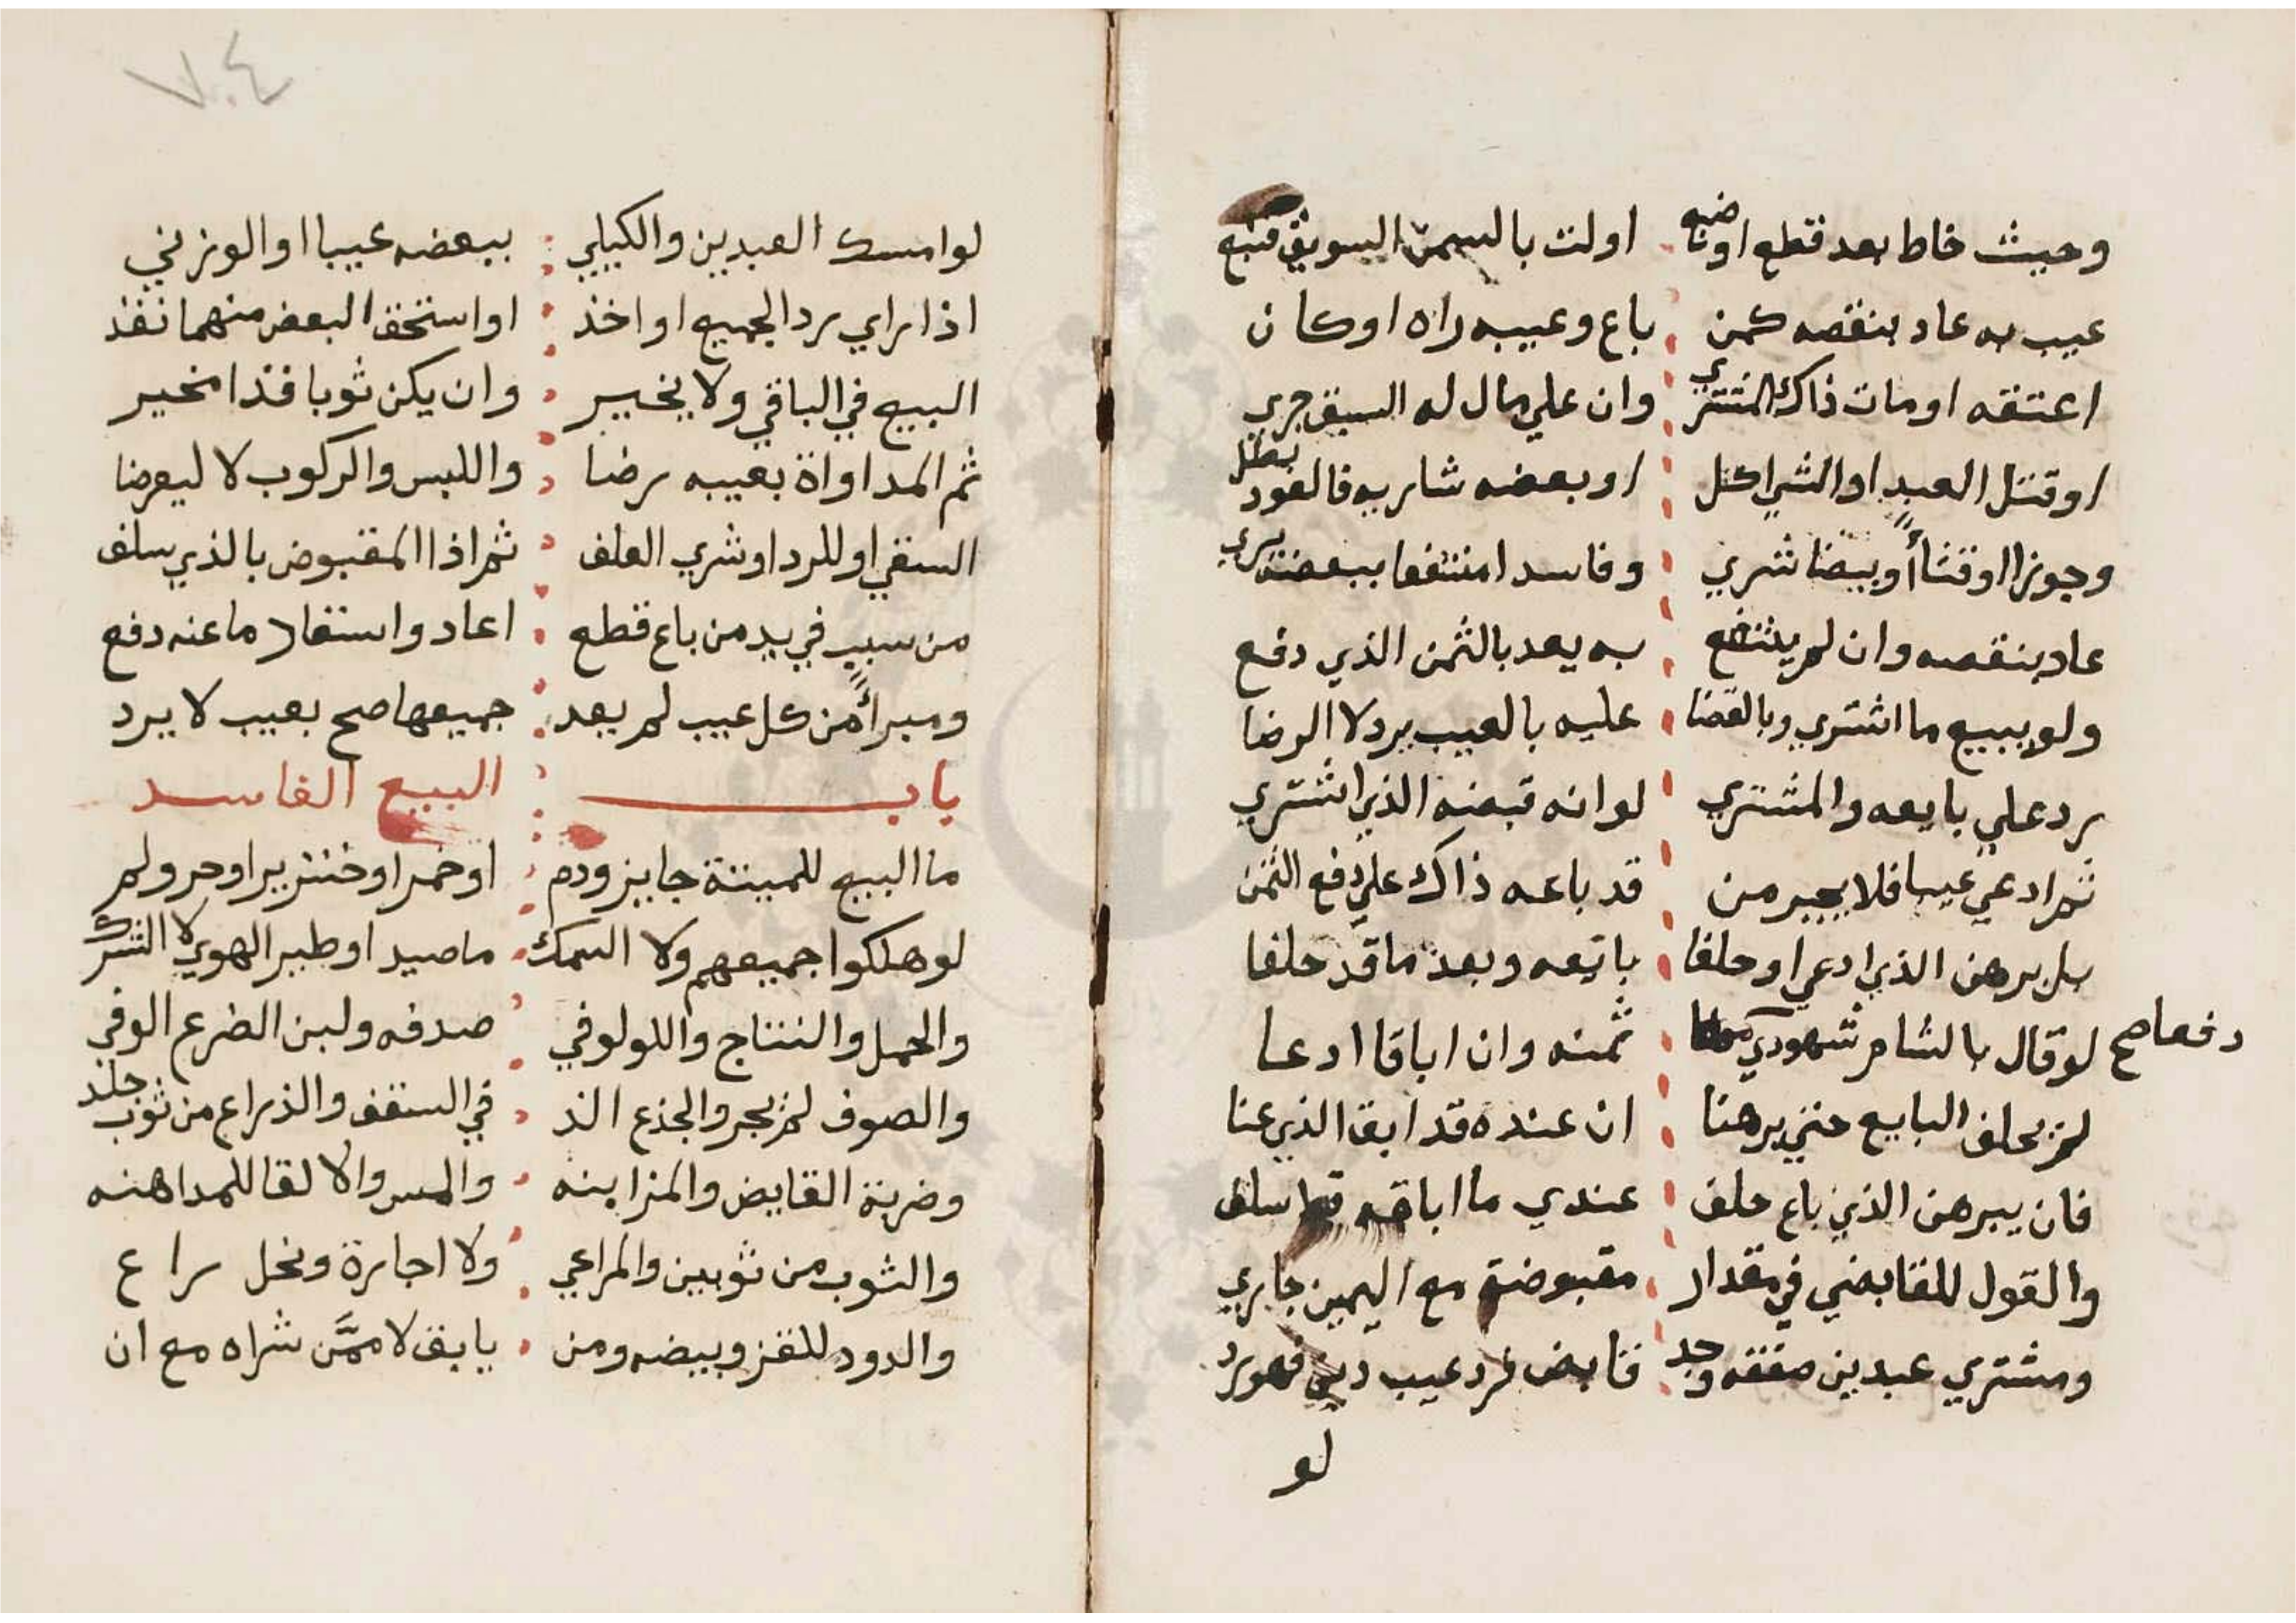 وحيث خاط بعد قطع او اولت بالسمن السويق
عيب به عاد بنقصه كمن باع وعيبه راه او كان
اعتقه او مات ذاك المشتري وان علي مال له السبق جري
او قتل العبد او الشي اكل او بعضه شاريه فالعود بطل
وجوزا او قثاأ وبيضا شري وفاسدا منتفعا ببعضه يري
عاد بنقصه وان لم ينتفع به يعد بالثمن الذي دفع
ولو يبيع ما اشتري وبالقضا عليه بالعيب يرد لا الرضا
رد علي بايعه والمشتري لو انه قبضه الذي اشتري
ثم ادعي عيبا فلا يجبر من قد باعه ذاك علي دفع الثمن
بل برهن الذي ادعي او حلفا بائعه وبعد ما قد حلفا
دفعا صح
لو قال بالشام شهودي ثمنه وان اباقا ادعا
لم يحلف البايع حتي برهنا ان عنده قد ابق الذي عنا
فان يبرهن الذي باع حلف عندي ما اباقه قط سلف
والقول للقابض في مقدار مقبوضة مع اليمين جاري
ومشتري عبدين صفقه وجد قابض فرد عيب دين فهو يرد
لو
٧٠٤
لو امسك العبدين والكيلي ببعضه عيبا او الوزني
اذا راي رد الجميع او اخذ او استحق البعض منهما نفذ
البيع في الباقي ولا يخير وان يكن ثوبا فذا مخير
ثم المداواة بعيبه رضا واللبس والركوب لا ليعرضا
السقي او للرد او شري العلف ثم اذا المقبوض بالذي سلف
من سبب في يد من باع قطع اعاد واستفاد ما عنه دفع
ومبرأ من كل عيب لم يعد جميعها صح بعيب لا يرد
باب البيع الفاسد
ما البيع للميتة جايز ودم او خمر او خنزير او حر ولم
لو هلكوا جميعهم ولا السمك ما صيد او طير الهوي لا الشرك
والحمل والنتاج واللولو في صدفه ولبن الضرع الوفي
والصوف لم يجر والجذع الذ في السقف والذراع من ثوب جلد
وضربة القابض والمزابنه والمس والالقا للمداهنه
والثوب من ثوبين والمراعي ولا اجارة ونحل راع
والدود للقز وبيضه ومن يابق لا ممن شراه مع ان